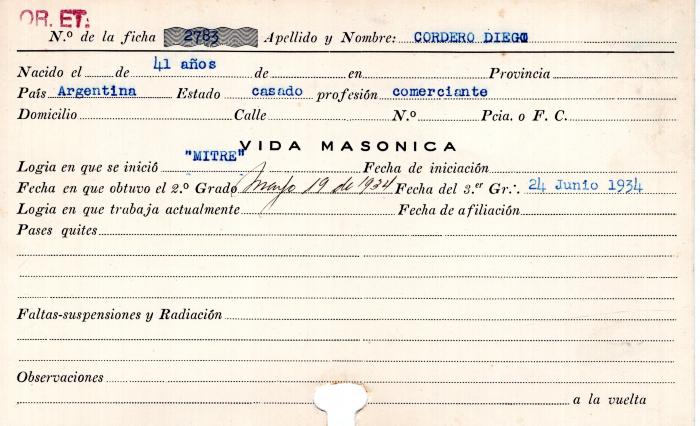 OR. ET.
N.º de la ficha 2783 Apellido y Nombre: CORDERO DIEGO
Nacido el de 41 años de en Provincia
País Argentina Estado casado profesión comerciante
Domicilio Calle N.º Pcia. o F. C.
VIDA MASONICA
Logia en que se inició "MITRE" Fecha de iniciación
Fecha en que obtuvo el 2.º Grado Mayo 19 de 1934 Fecha del 3.er Gr∴ 24 Junio 1934
Logia en que trabaja actualmente Fecha de afiliación
Pases quites
Faltas-suspensiones y Radiación
Observaciones
a la vuelta